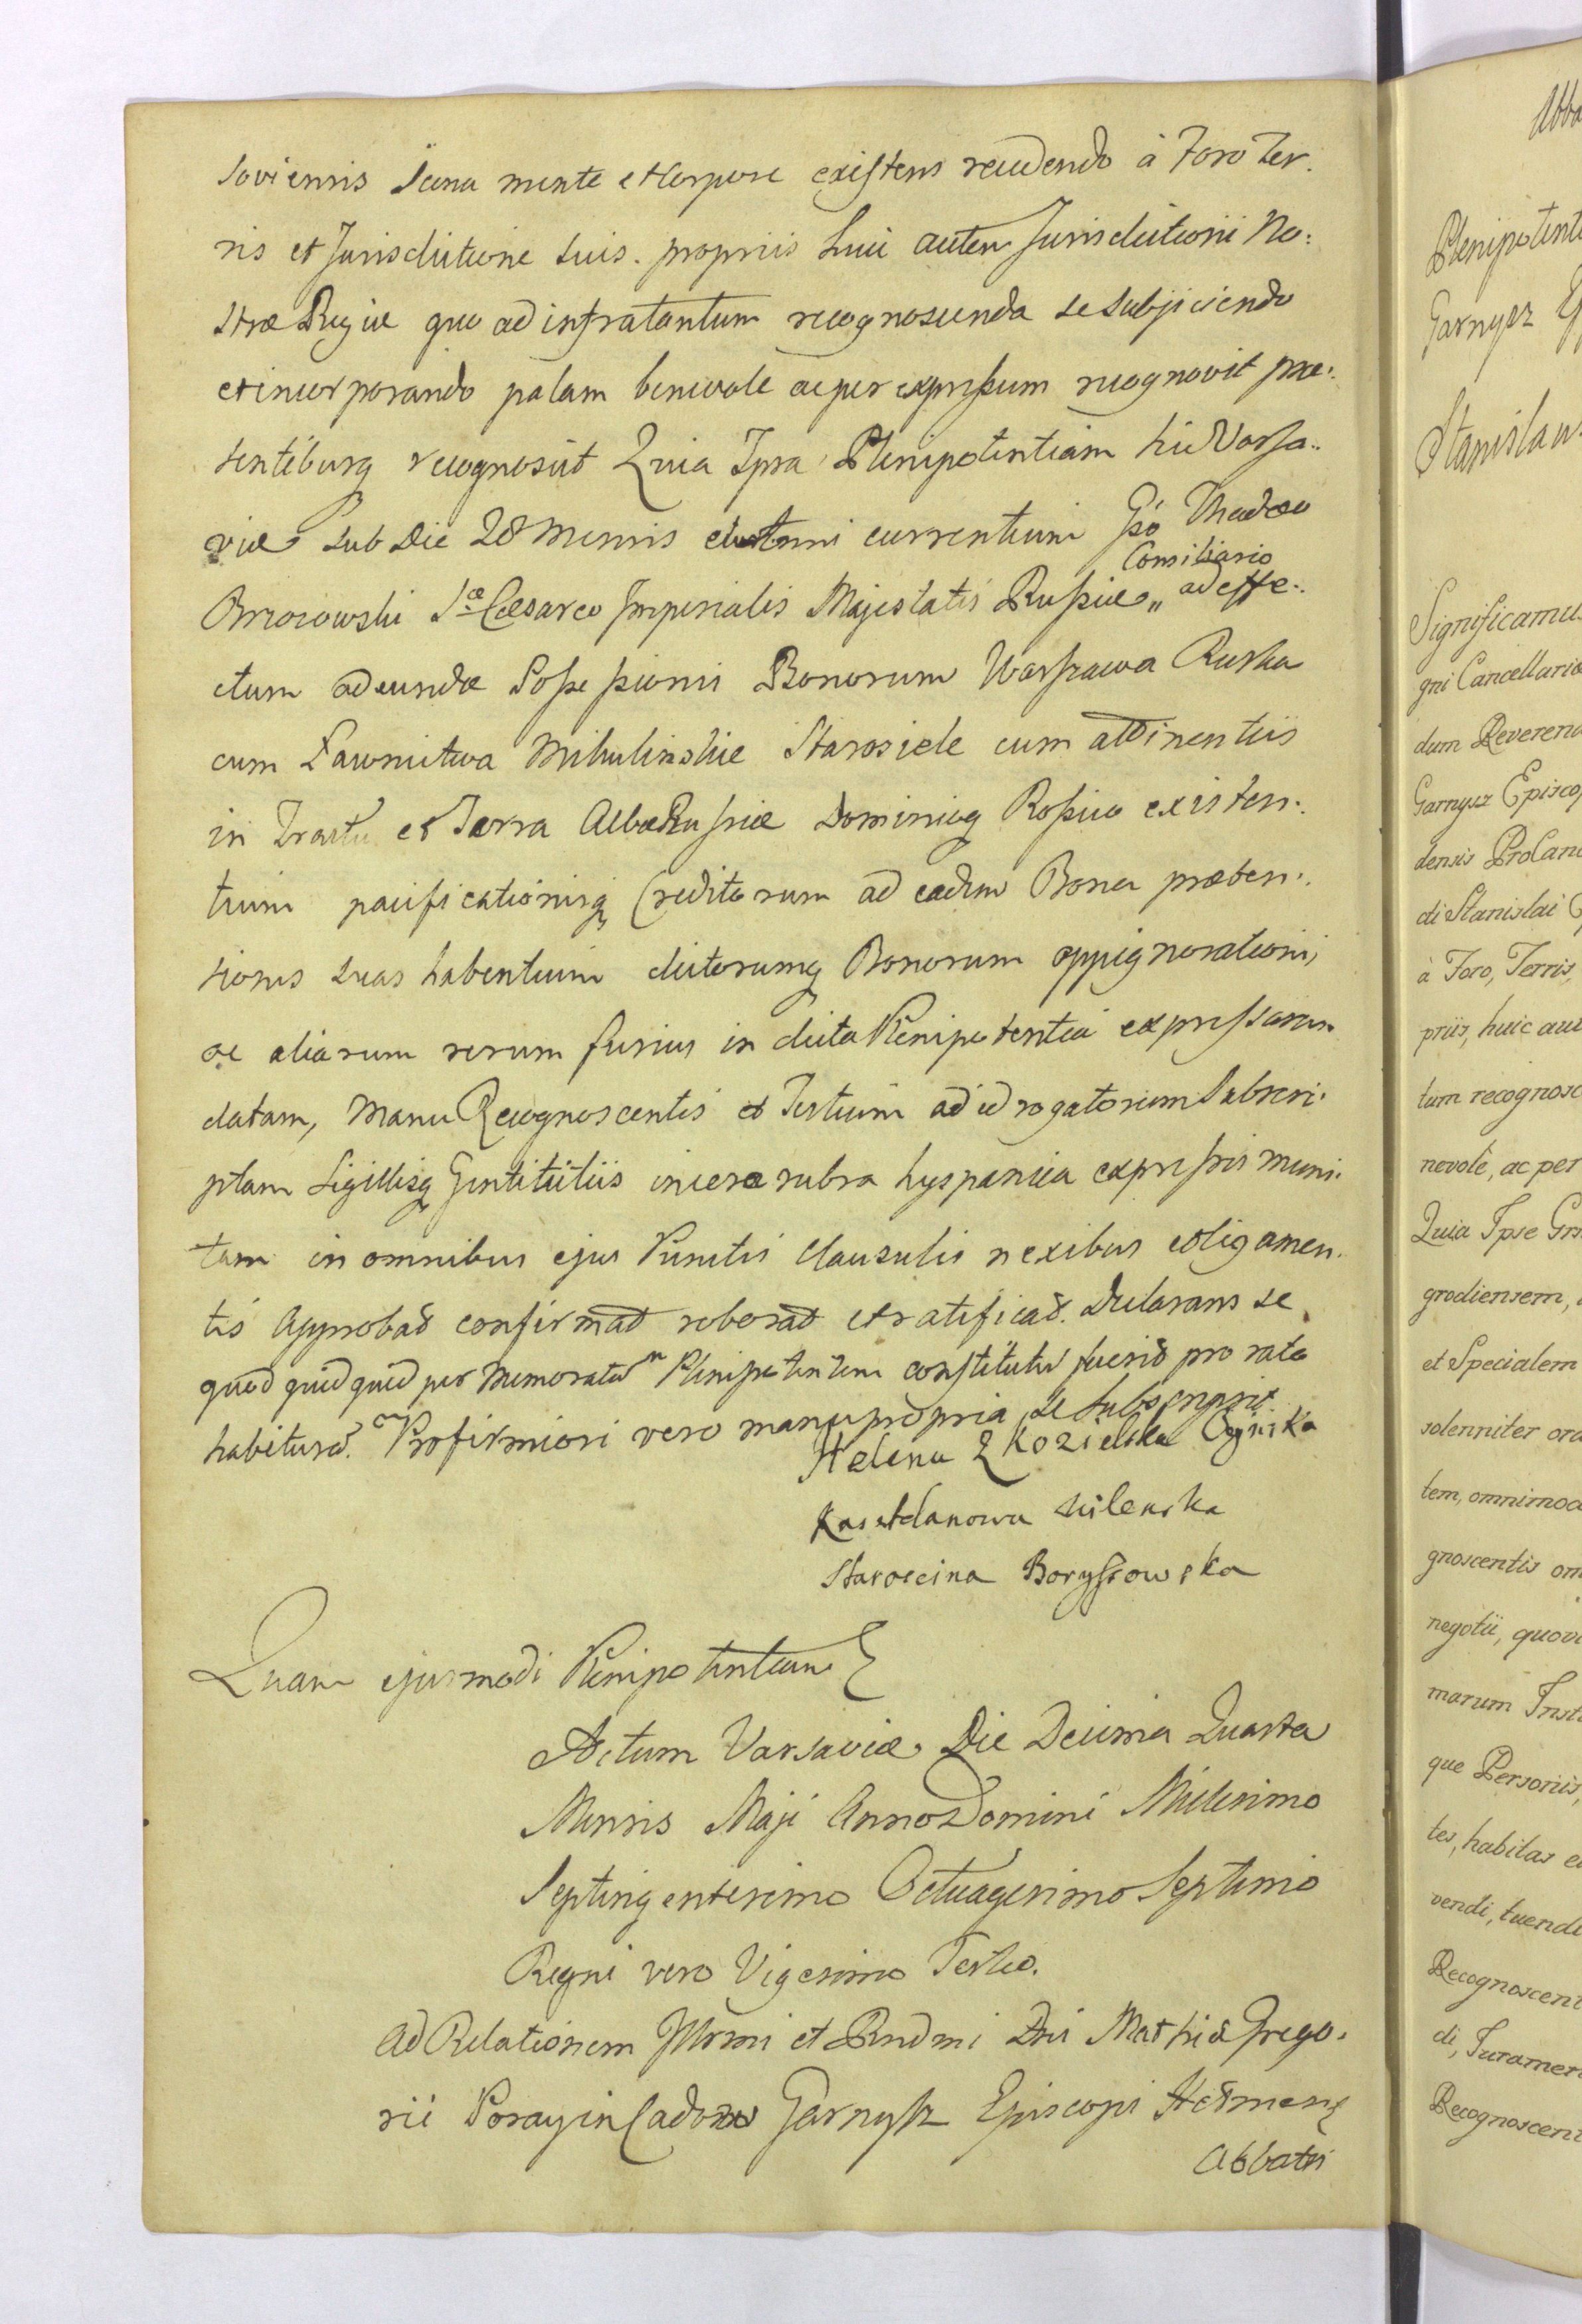 soviensis Sana mente et Corpore existens recedendo à Foro Ter:
ris et Jurisdictione suis propriis huic autem Jurisdictioni No:
stræ Regiæ quo ad infratantum recognoscenda se subjiciendo
et incorporando palam benevole ac per expressum recognovit præ:
sentibusq recognoscit Quia Ipsa Plenipotentiam hic Varsa:
viæ sub Die 28 Mensis et Anni currentium Gso Thadeo
Consiliario
Brzozowski Sæ Cæsareo Imperialis Majestatis Russiæ,, ad effe:
ctum adeundæ Possessionis Bonorum Warszawa Ruska
cum Ławnictwa Mikulinskie Starosiele cum attinentiis
in Tractu et Terra Albæ Russiæ Dominioq Rossico existen:
tium pacificationisq Creditorum ad eadem Bona præten:
siones suas habentium dictorumq Bonorum oppignorationis
ac aliarum rerum fusius in dicta Plenipotentia expressarum
datam, Manu Recognoscentis et Testium ad id rogatorum Subscri:
ptam Sigillisq Gentilitiis in cera rubra hyspanica expressis muni:
tam in omnibus ejus Punctis Clausulis nexibus et ligamen:
tis Approbat confirmat roborat et ratificat. Declarans se
quod quidquid per memoratum Plenipotentem constitutum fuerit pro rato
habituram. Pro firmiori vero manu propria se subscripsit
Helena Z Kozielska Oginska
Kasztelanowa Wilenska
Starościna Boryssowska
Quam ejusmodi Plenipotentiam
Actum Varsaviæ Die Decima Quarta
Mensis Maji Anno Domini Millesimo
Septingentesimo Octuagesimo Septimo
Regni vero Vigesimo Tertio.
Ad Relationem Illrmi et Rndmi Dni Mathiæ Grego:
rii Poray in Garnysz Episcopi Chelmens
Abbatis
Abba
Plenipotent
Garnysz Ep
Stanislaw
Significamus
gni Cancellariæ
dum Reverend
Garnysz Episcop
densis ProCanc
di Stanislai
à Foro, Terris,
priis, huic aut
tum recognosc
nevolè, ac per
Quia Ipse Grs
grodiensem,
et Specialem
solenniter ord
tem, omnimod
gnoscentis om
negotii, quovi
marum Inst
que Personis,
tes, habitas e
vendi, tuendi
Recognoscent
di, Juramen
Recognoscent